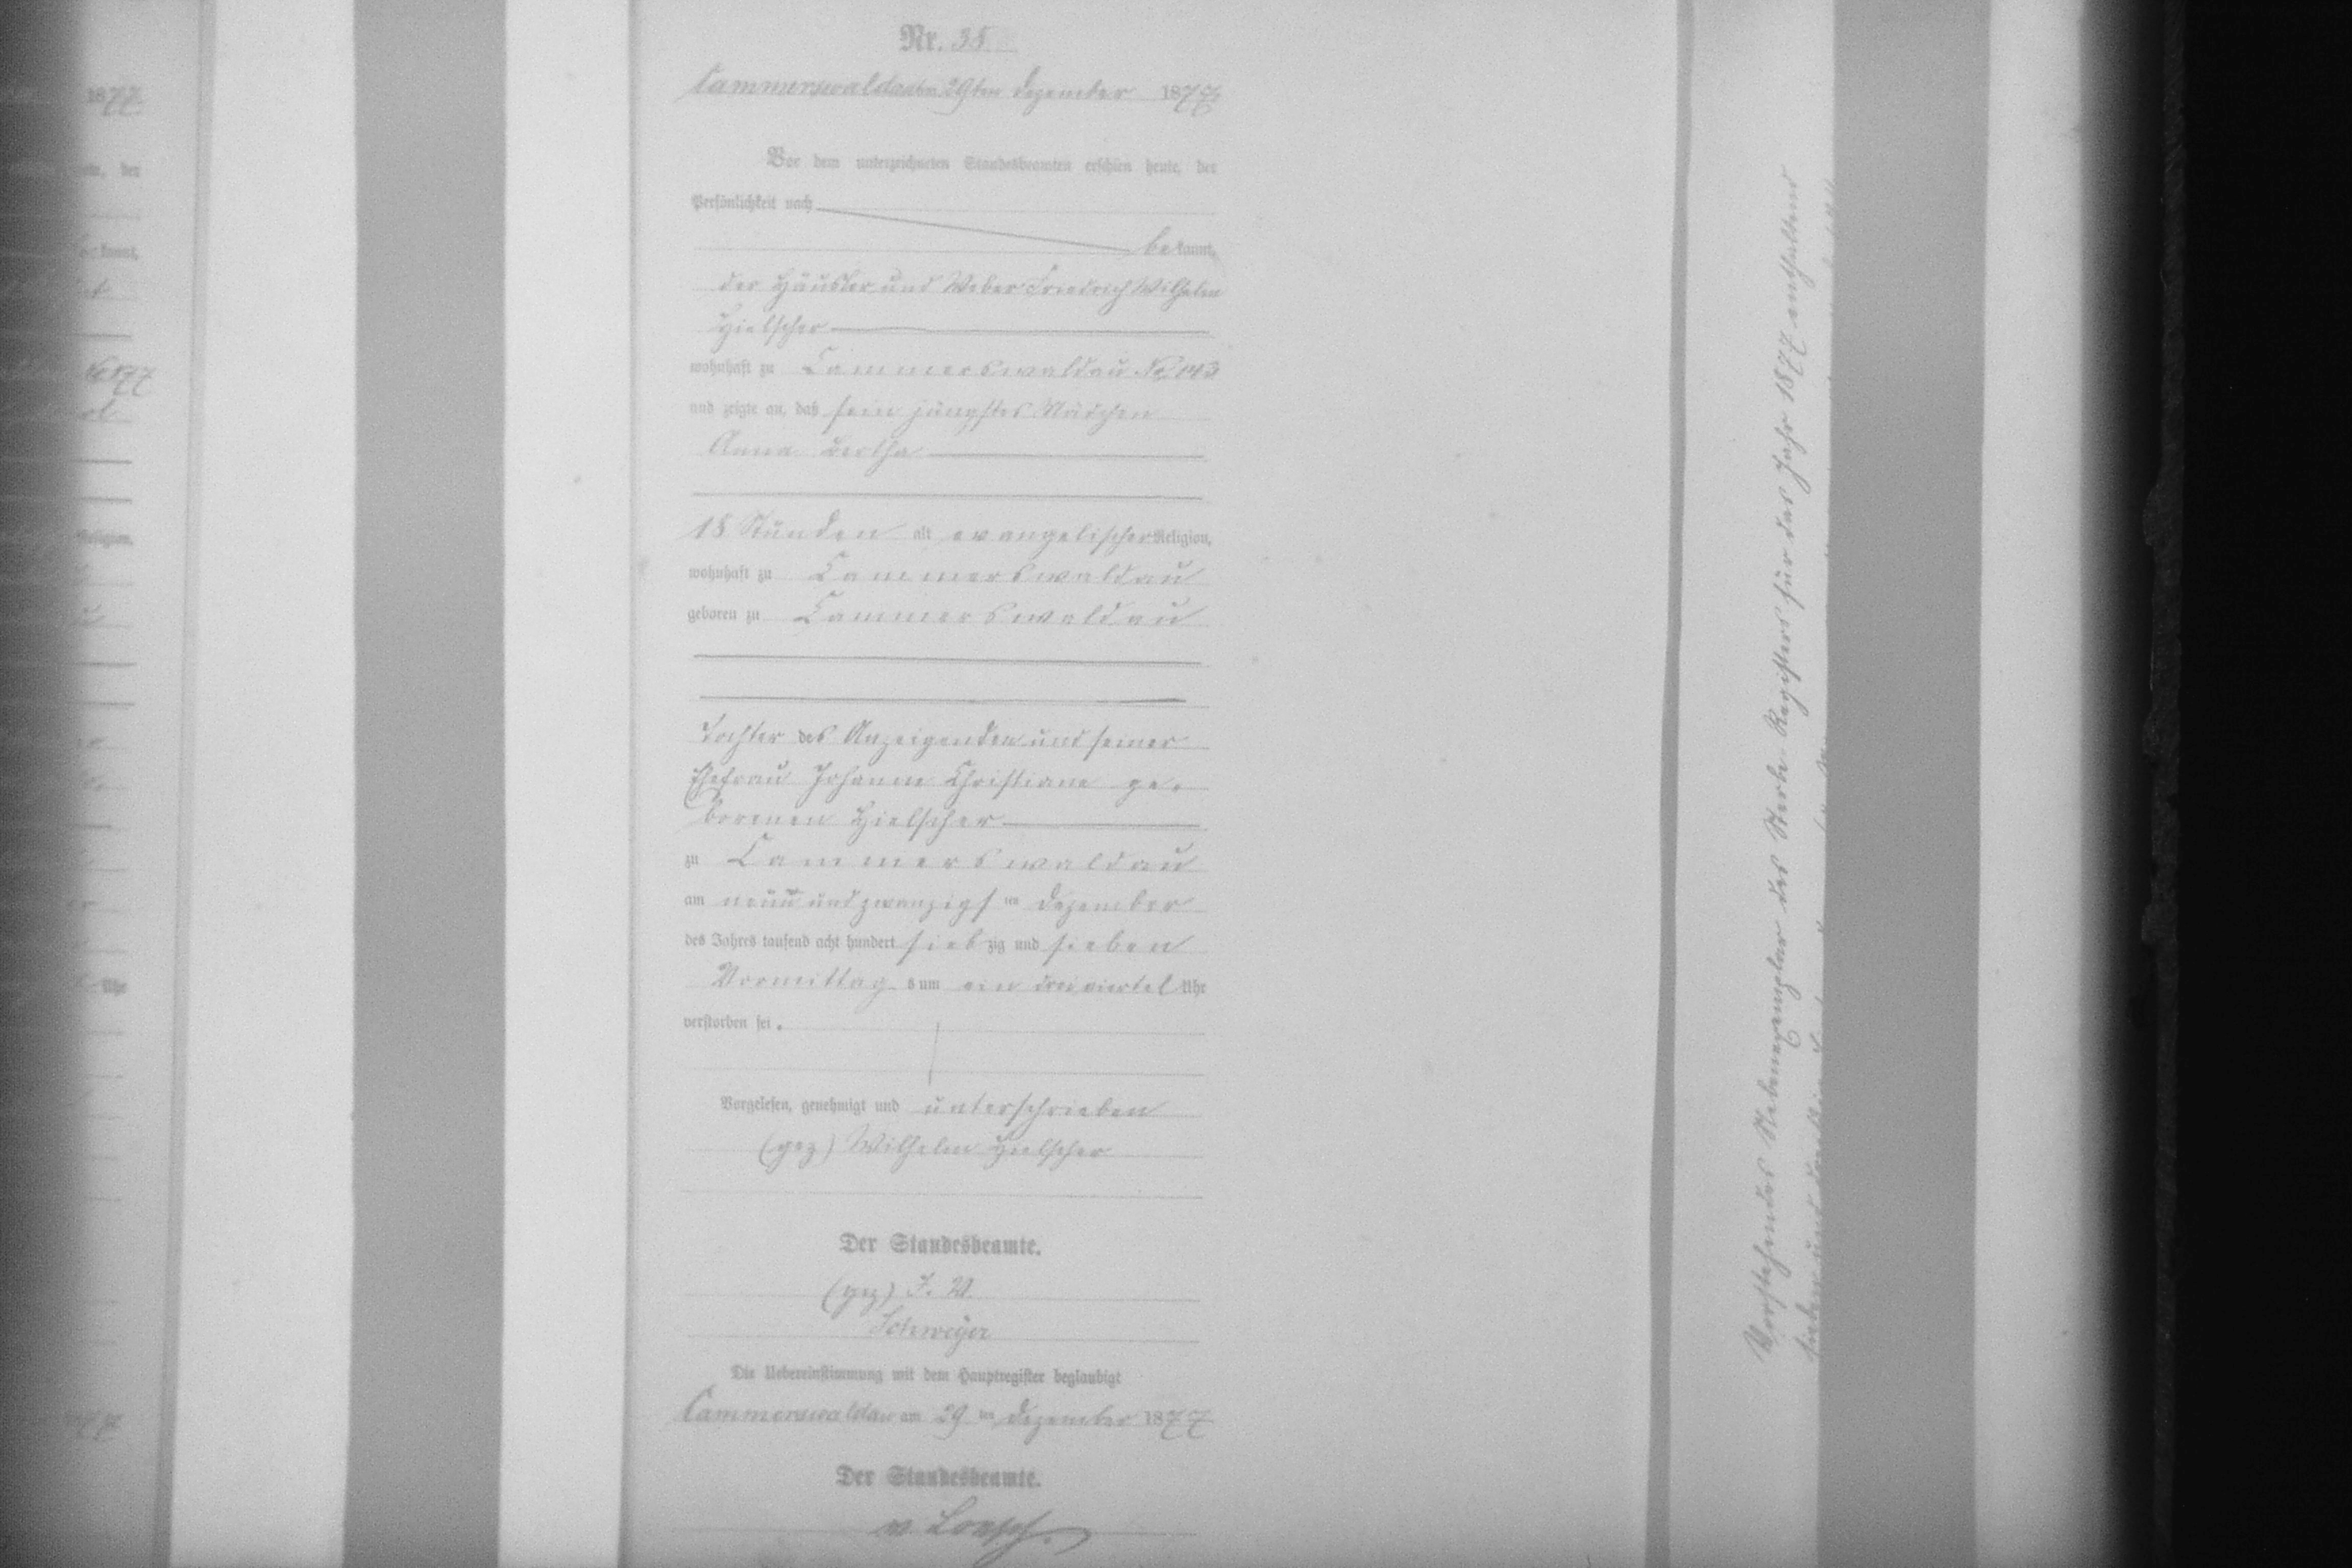 Nr. 38
Cammerswaldau am 29ten Dezember 1877
Vor dem unterzeichneten Standesbeamten erschien heute, der
Persönlichkeit nach
bekannt,
der Häusler und Weber Friedrich Wilhelm
Hielscher
wohnhaft zu Cammerswaldau No 143
und zeigte an, daß sein jüngstes Mädchen
Anna Bertha
18 Stunden alt evangelischer Religion,
wohnhaft zu Cammerswaldau
geboren zu Cammerswaldau
Tochter des Anzeigenden und seiner
Ehefrau Johanne Christiane ge-
borenen Hielscher
zu Cammerswaldau
am neun und zwanzigsten Dezember
des Jahres tausend acht hundert siebzig und sieben
Vormittags um ein dreiviertel Uhr
verstorben sei.
Vorgelesen, genehmigt und unterschrieben
(gez) Wilhelm Hielscher
Der Standesbeamte.
(gez) I. V.
Schweyer
Die Uebereinstimmung mit dem Hauptregister beglaubigt
Cammerswaldau am 29ten Dezember 1877
Der Standesbeamte.
v.
Vorstehendes Nebenexemplar des Sterbe Registers für das Jahr 1877 enthaltend
sieben und dreißig
1877
der
kannt,
1877
Religion,
Uhr